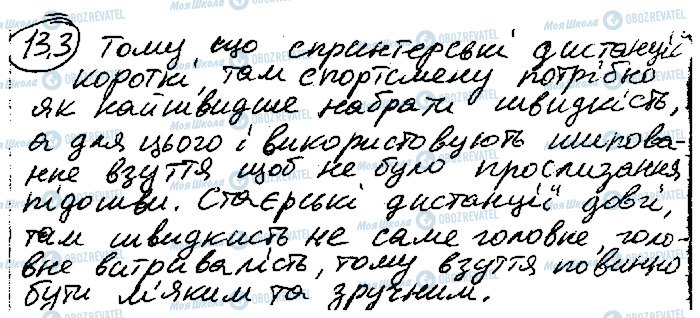 13.3 Тому що спринтерські дистанції
короткі, там спортсмену потрібно
як найшвидше набрати швидкість,
а для цього і використовують шипова-
нне взуття щоб не було прослизання
підошви. Стаєрські дистанції довгі,
там швидкисть не саме головне, голо-
вне витривалість, тому взуття повинно
бути м'яким та зручним.